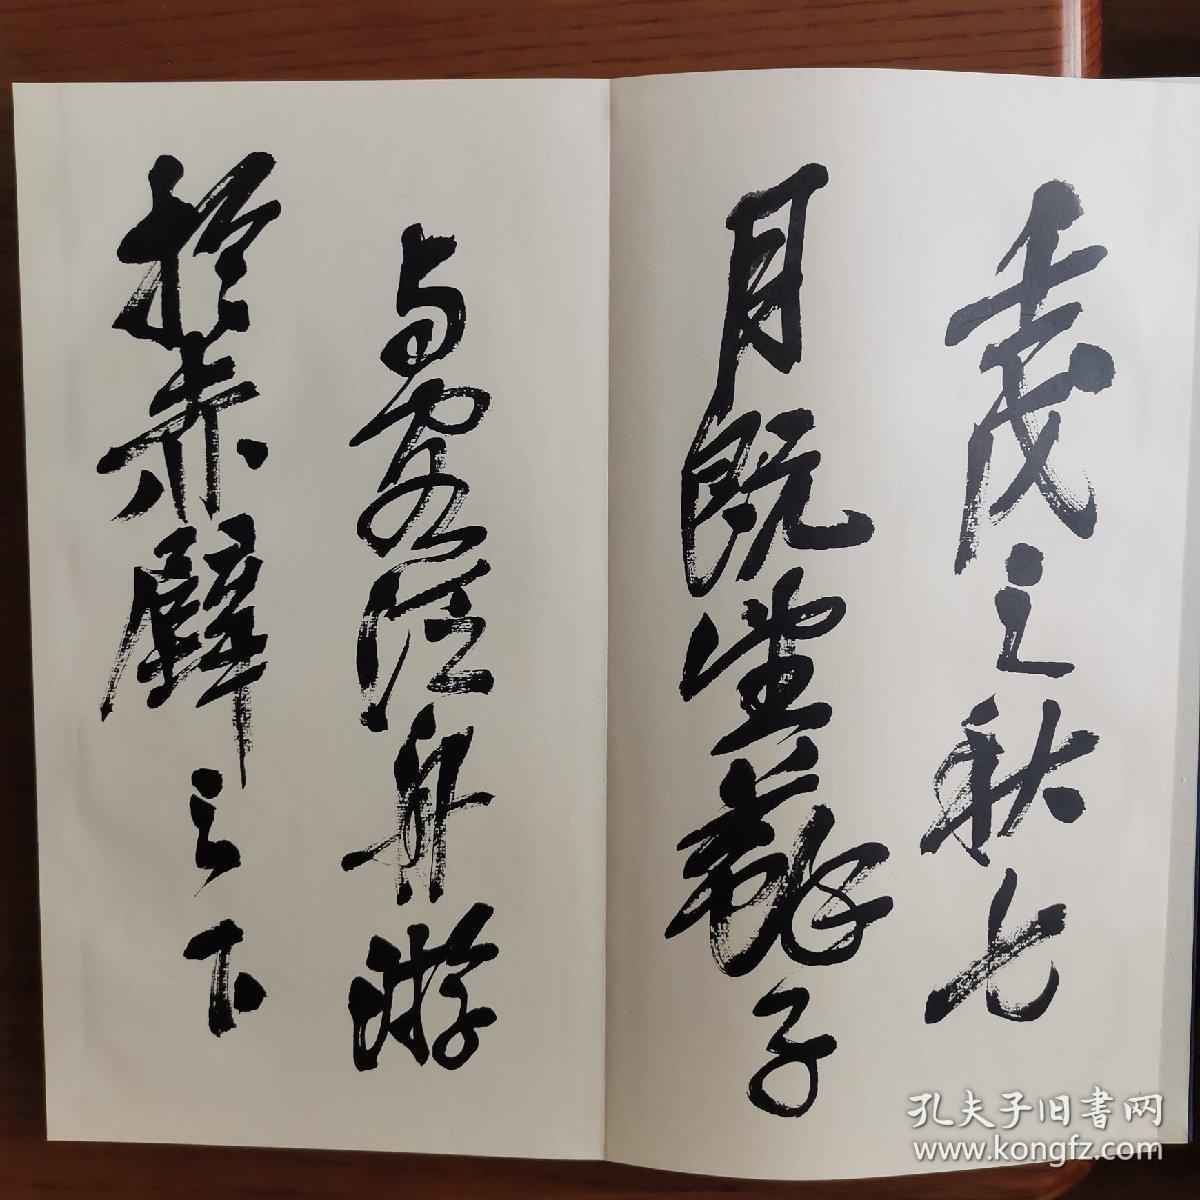 壬戌之秋七
月既望蘇子
与客泛舟游
於赤壁之下
孔夫子旧书网
www.kongfz.com